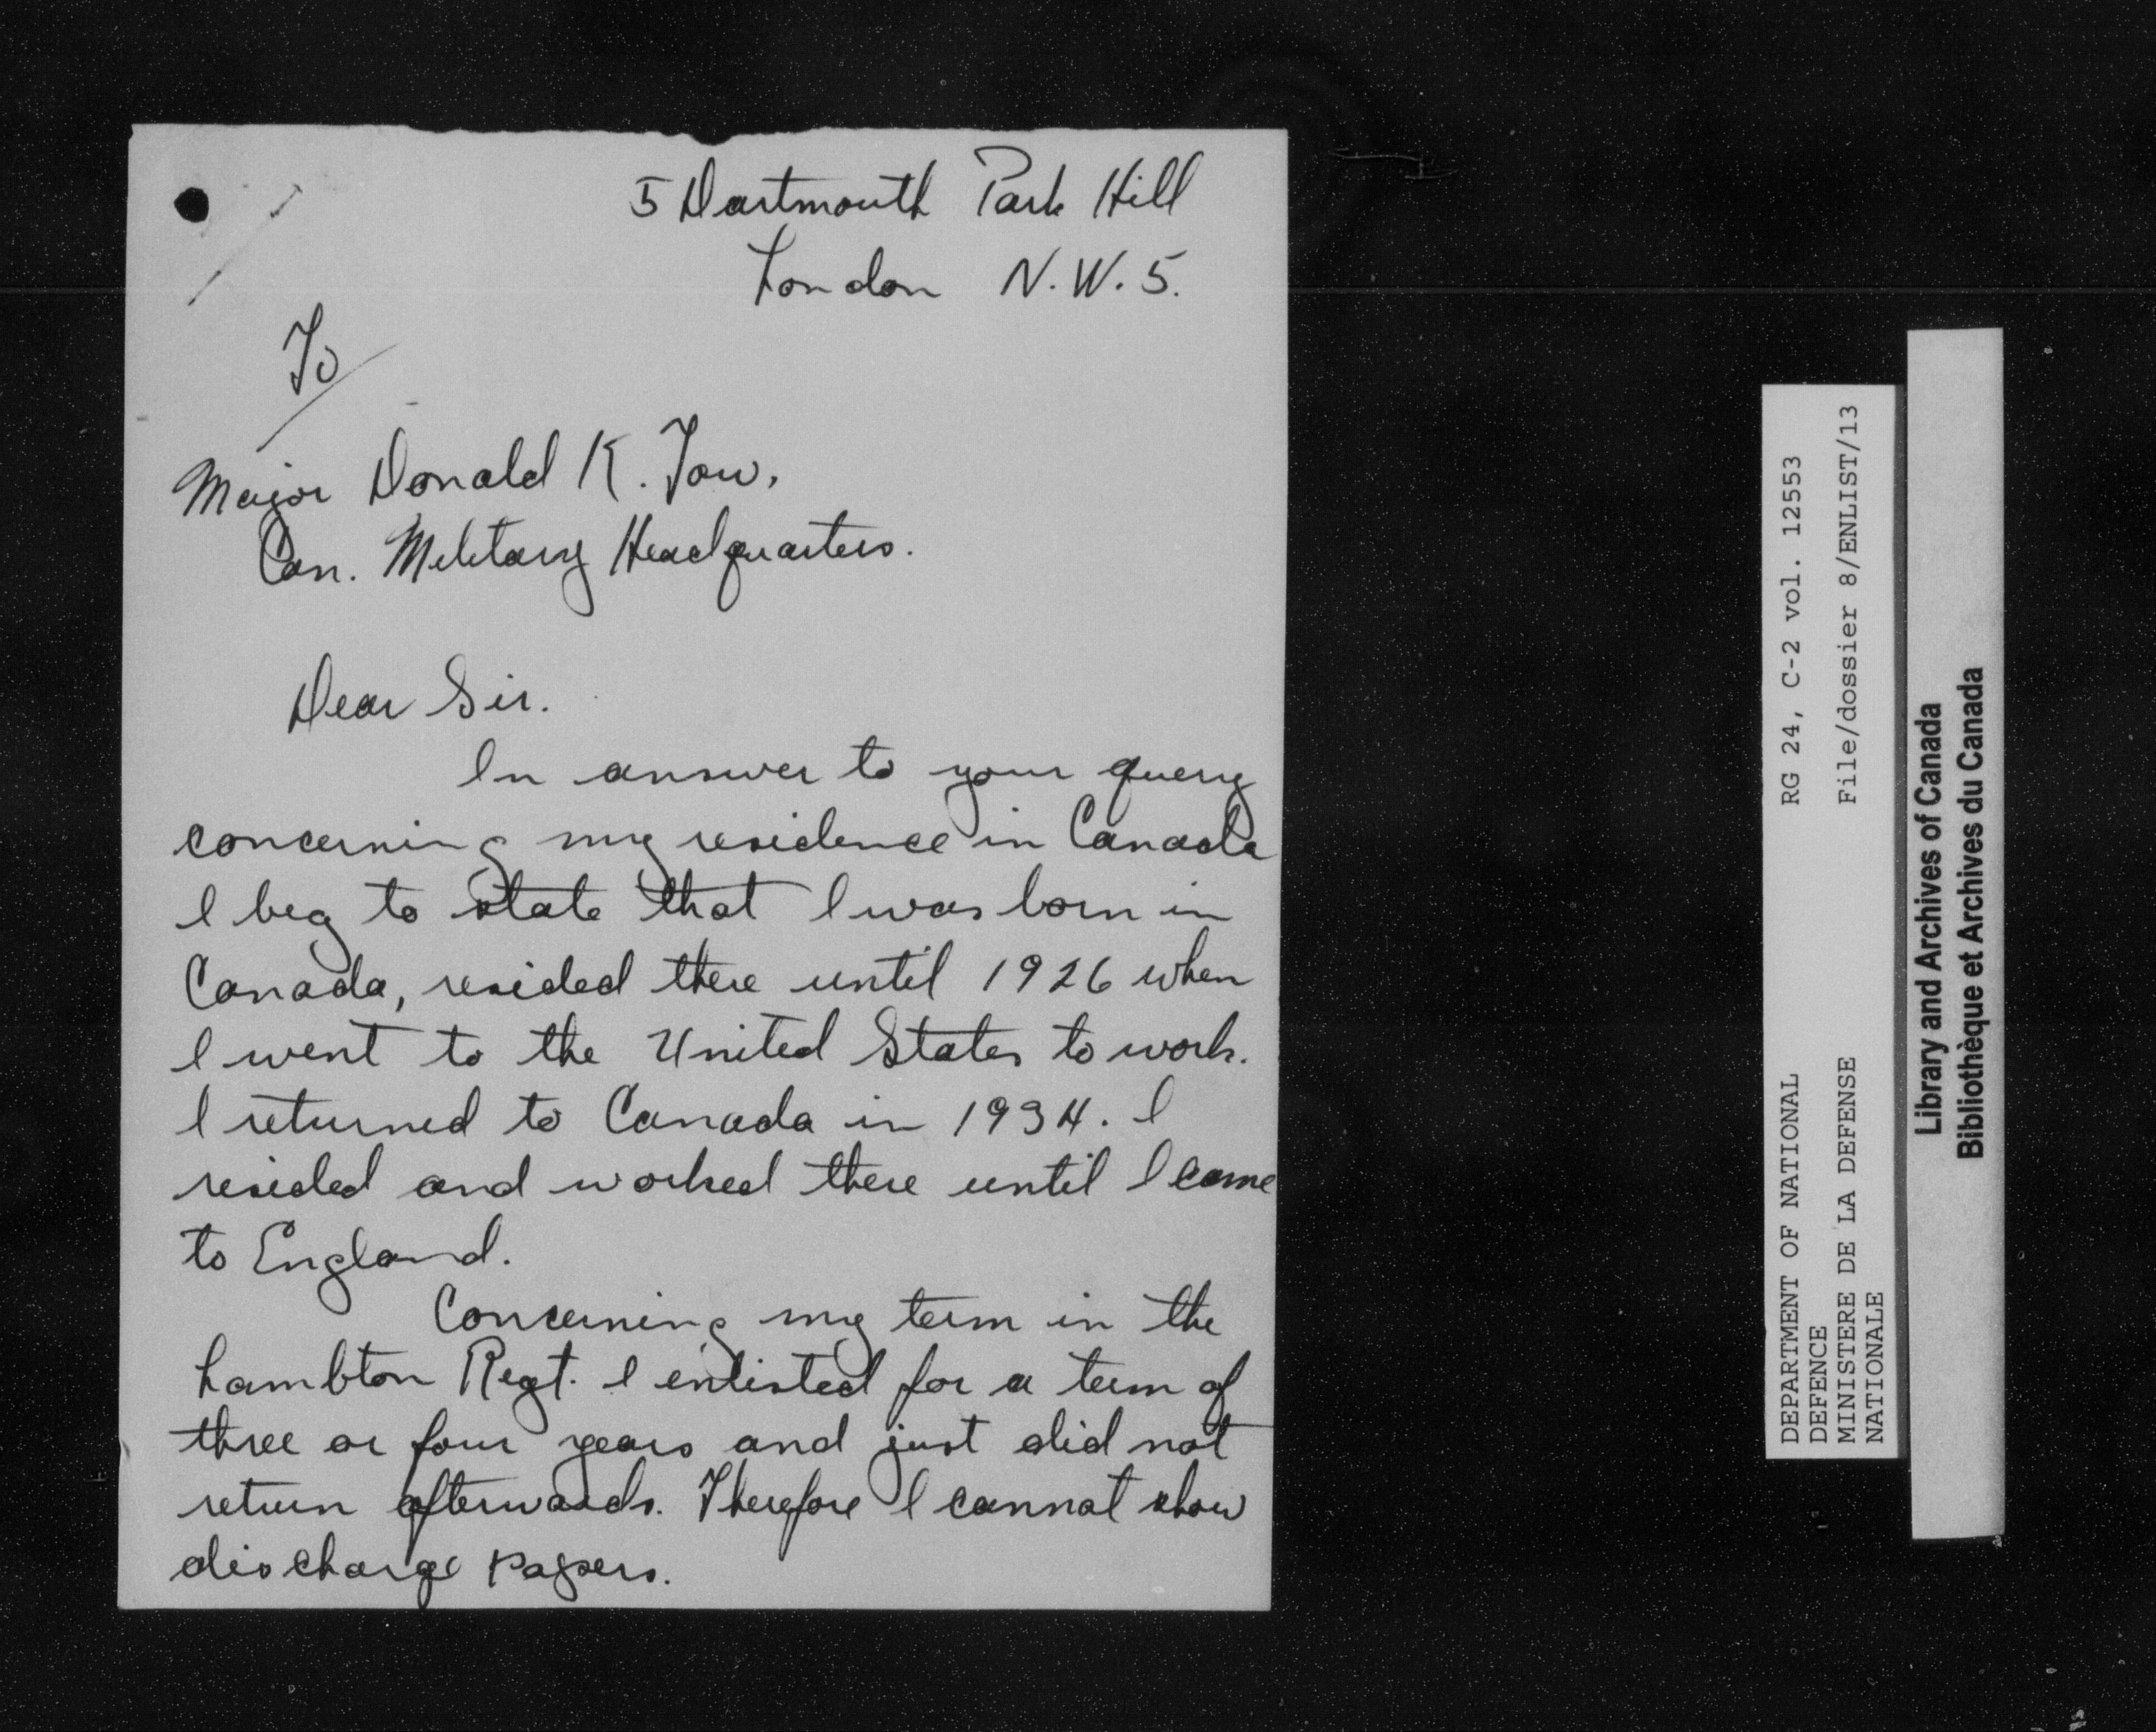 5 Dartmouth Park Hill
London N.W.5.
To
Major Donald K. Tow,
Can. Military Headquarters.
Dear Sir.
In answer to your query
concerning my residence in Canada
I beg to state that I was born in
Canada, resided there until 1926 when
I went to the United States to work.
I returned to Canada in 1934. I
resided and worked there until I came
to England.
Concerning my term in the
Lambton Regt. I enlisted for a term of
three or four years and just did not
return afterwards. Therefore I cannot show
discharge papers.
DEPARTMENT OF NATIONAL RG 24, C-2 vol. 12553
DEFENCE
MINISTERE DE LA DEFENSE File/dossier 8/ENLIST/13
NATIONALE
Library and Archives of Canada
Bibliothèque et Archives du Canada